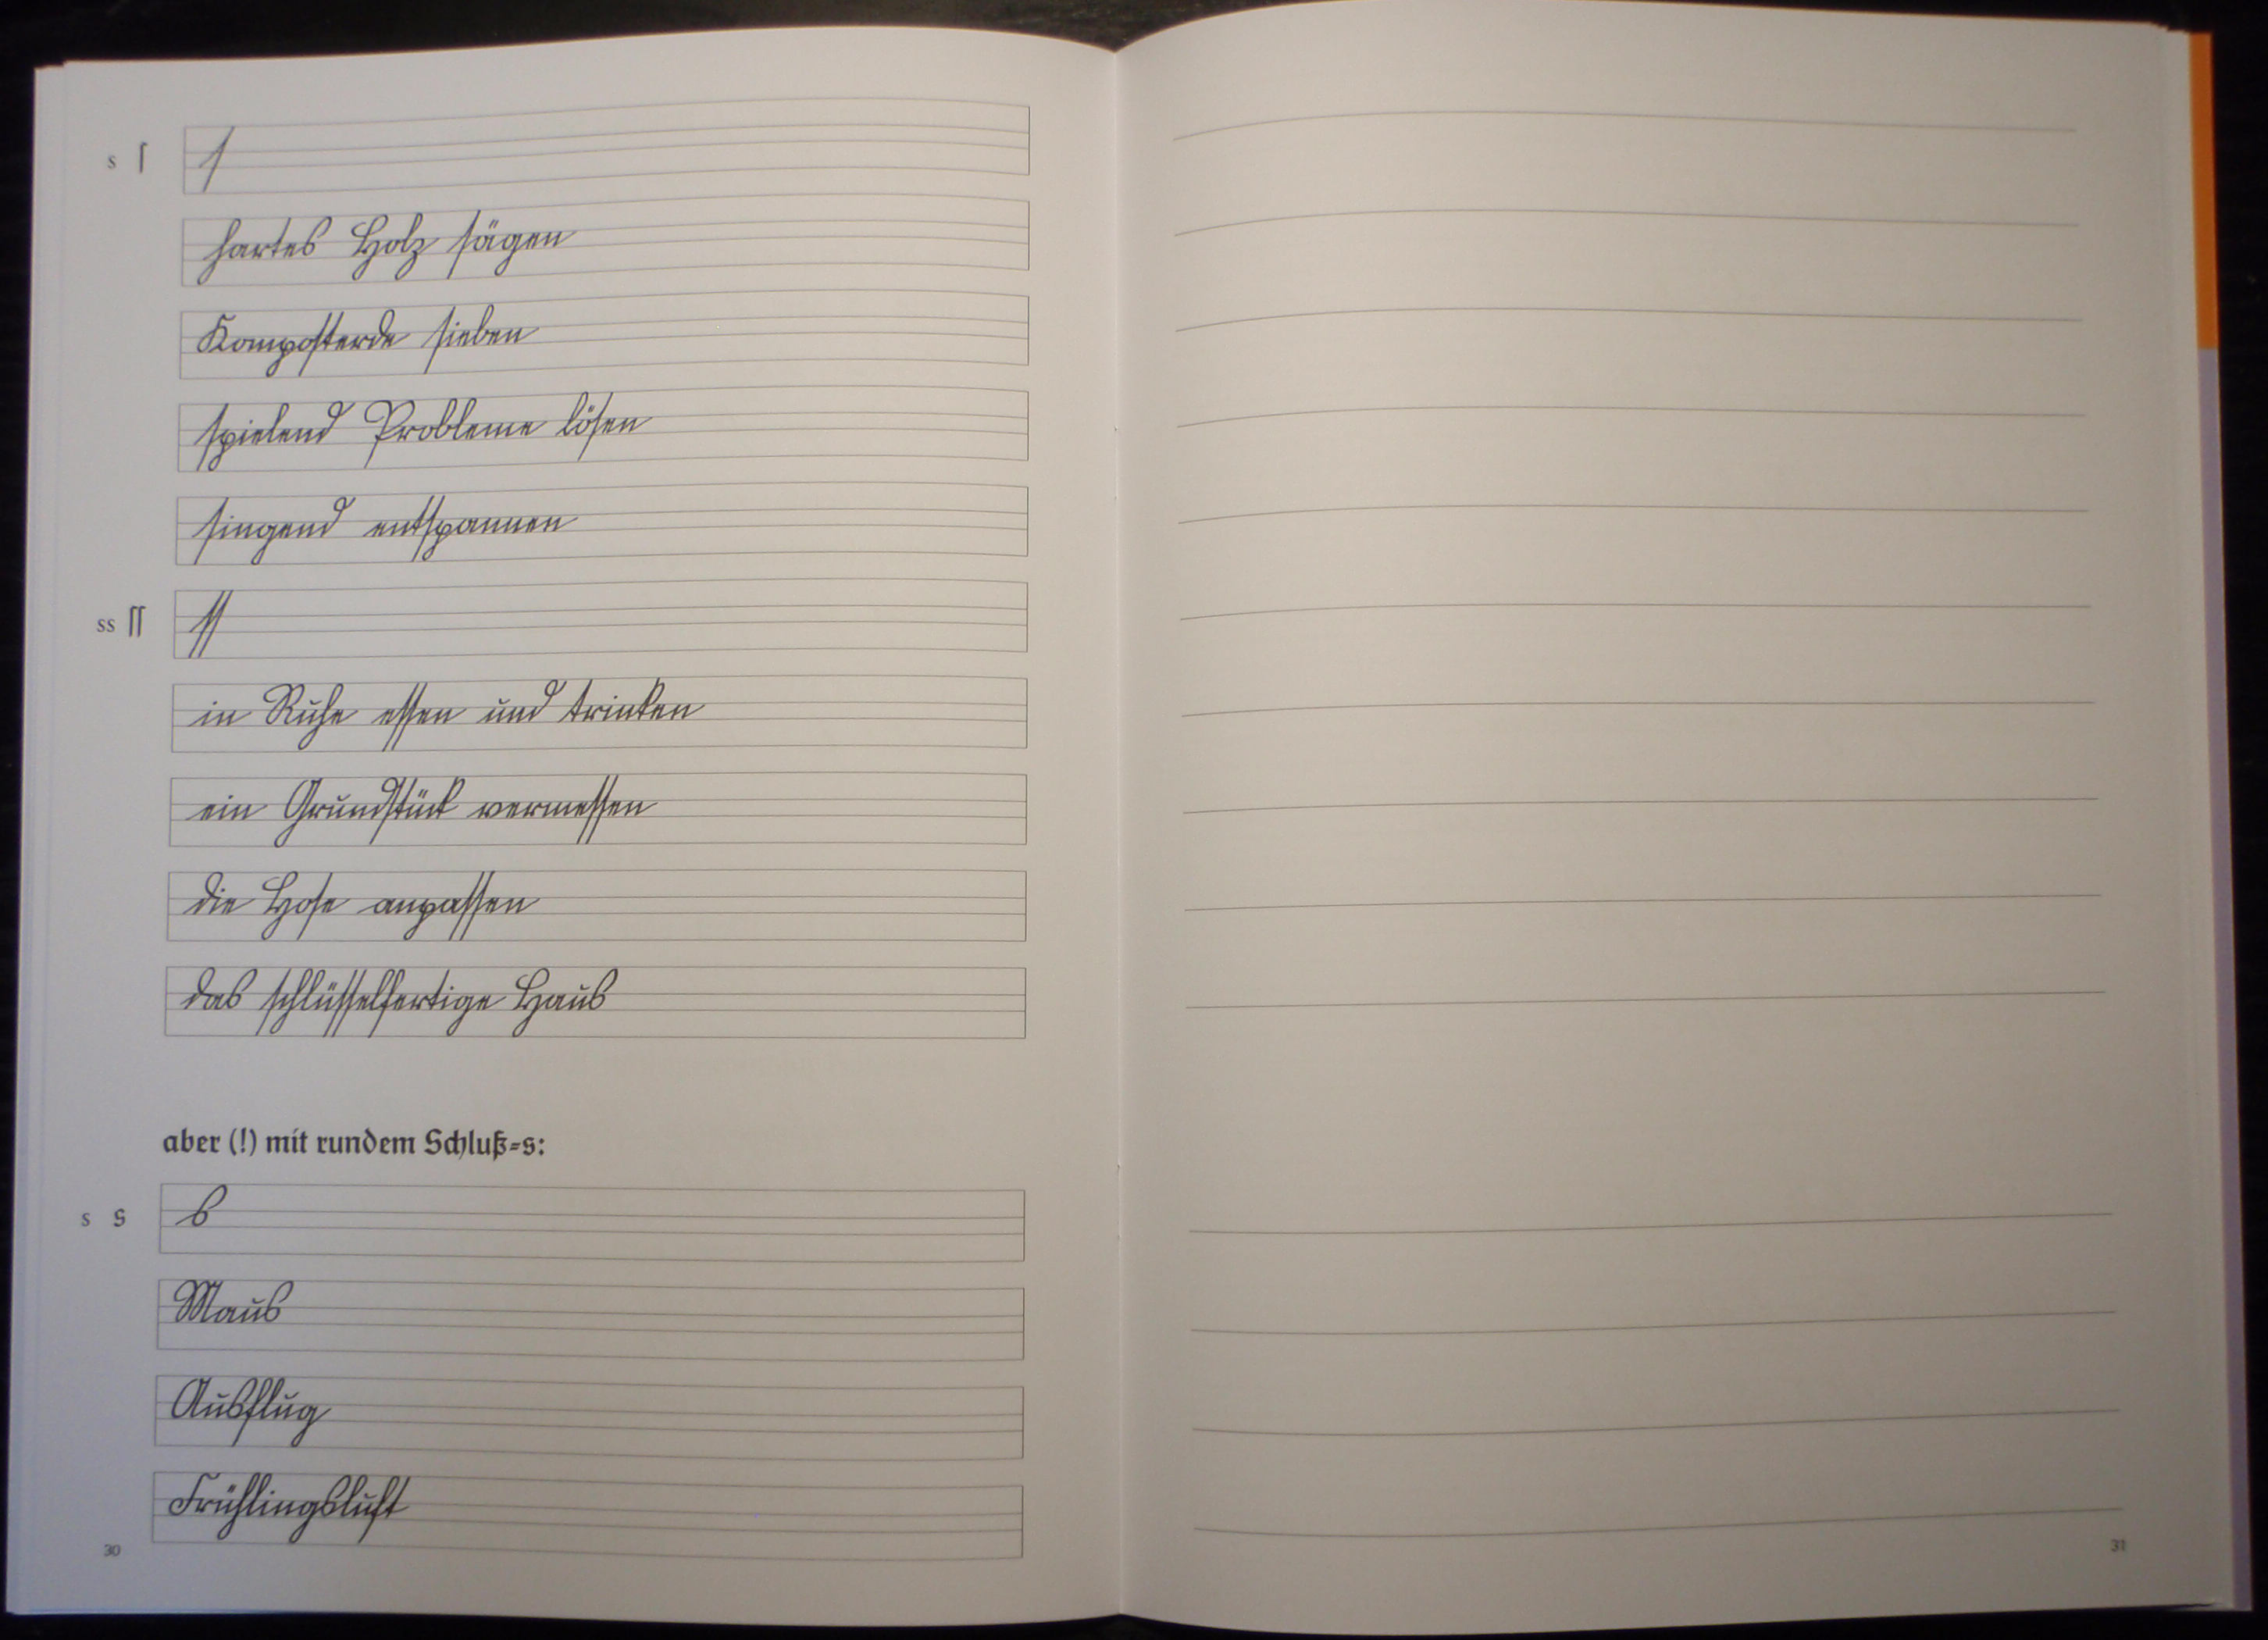 s ſ ſ
hartes Holz ſägen
Kompoſterde ſieben
ſpielend Probleme löſen
ſingend entſpannen
ss ſſ ſſ
in Ruhe eſſen und trinken
ein Grundſtück vermeſſen
die Hoſe anpaſſen
das ſchlüſſelfertige Haus
aber (!) mit rundem Schluß-s:
s s s
Maus
Ausflug
Frühlingsluft
30
31